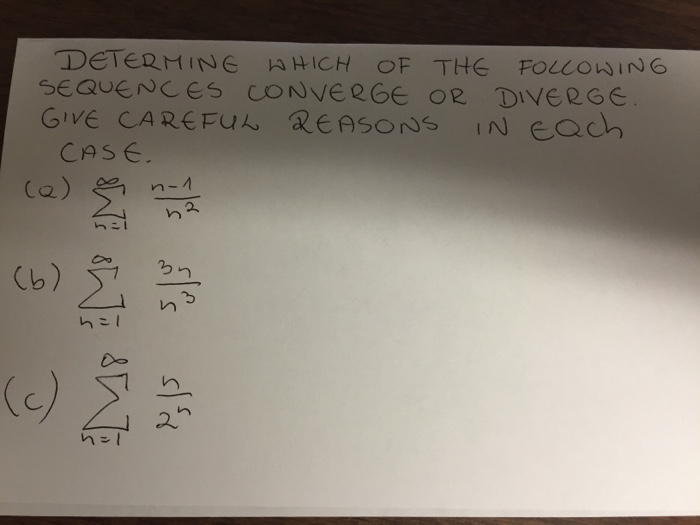 DETERMINE WHICH OF THE FOLLOWING
SEQUENCES CONVERGE OR DIVERGE.
GIVE CAREFUL REASONS IN EACH
CASE.
(a) ∑_{n=1}^{∞} \frac{n-1}{n^2}
(b) ∑_{n=1}^{∞} \frac{3n}{n^3}
(c) ∑_{n=1}^{∞} \frac{n}{2^n}